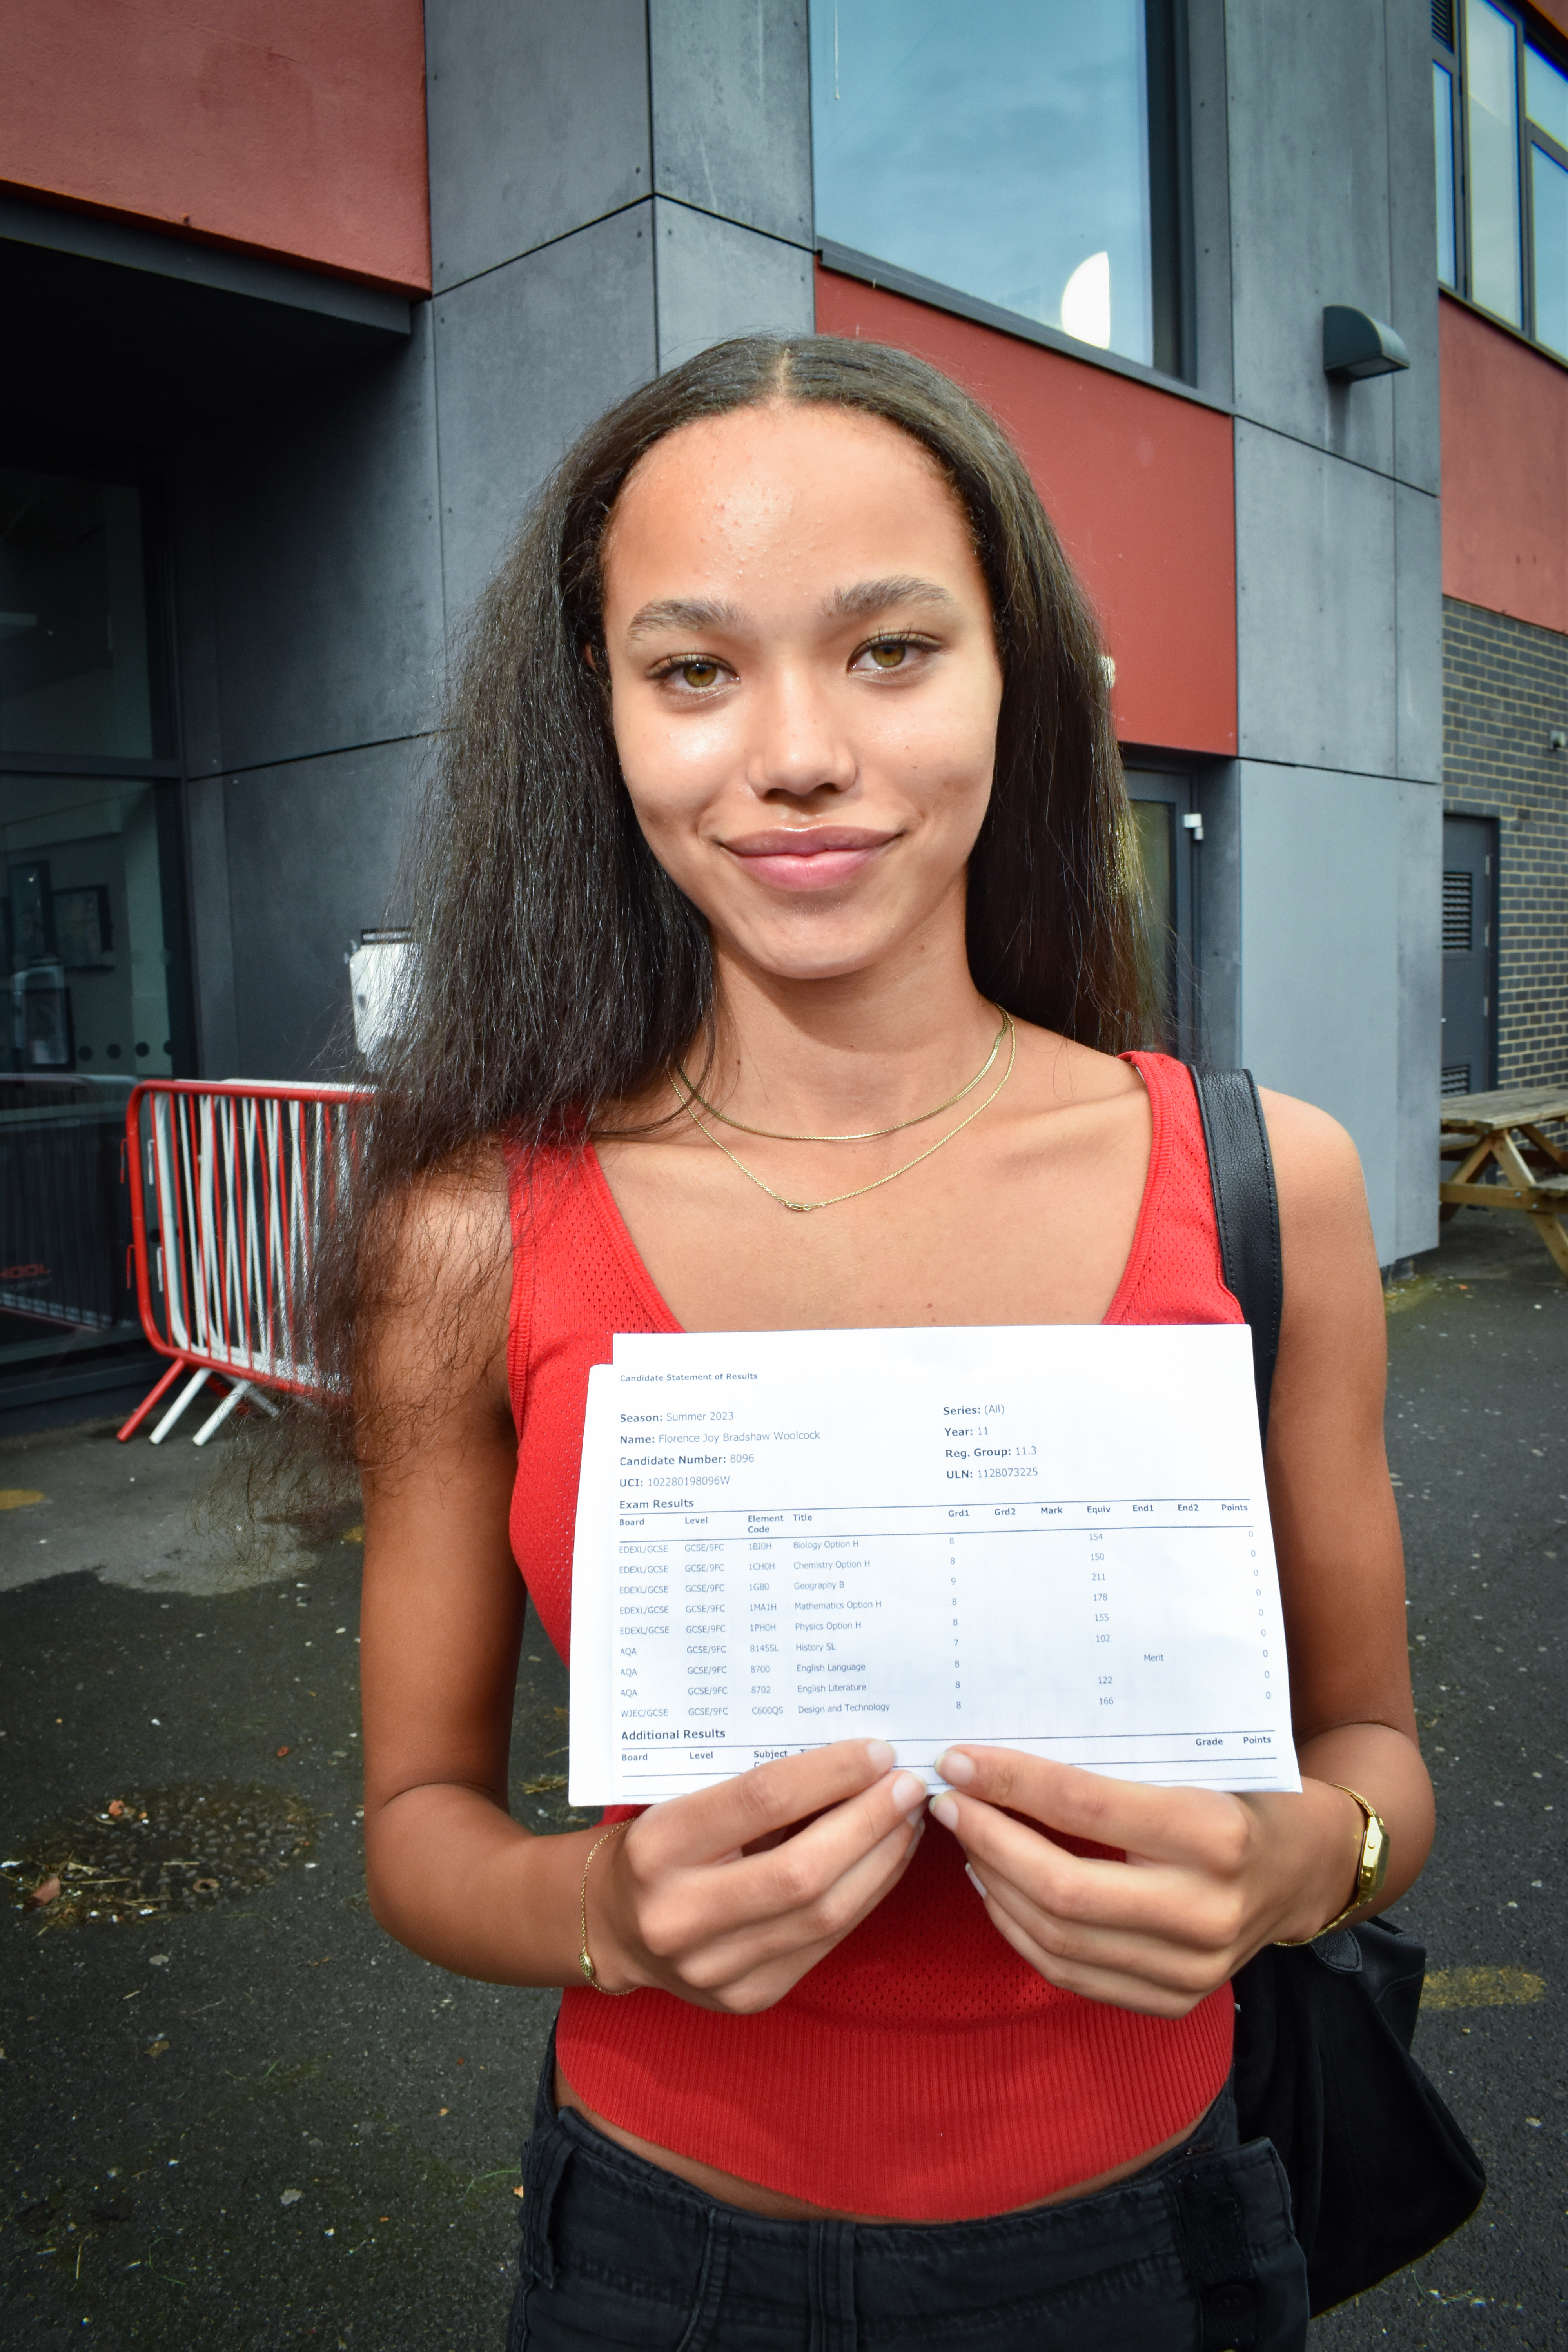 Candidate Statement of Results
Season: Summer 2023 Series: (All)
Name: Florence Joy Bradshaw Woolcock Year: 11
Candidate Number: 8096 Reg. Group: 11.3
UCI: 102280198096W ULN: 1128073225
Exam Results
Board Level Element Code Title Grd1 Grd2 Mark Equiv End1 End2 Points
EDEXL/GCSE GCSE/9FC 1BI0H Biology Option H 8 154 0
EDEXL/GCSE GCSE/9FC 1CH0H Chemistry Option H 8 150 0
EDEXL/GCSE GCSE/9FC 1GB0 Geography B 9 211 0
EDEXL/GCSE GCSE/9FC 1MA1H Mathematics Option H 8 178 0
EDEXL/GCSE GCSE/9FC 1PH0H Physics Option H 8 155 0
AQA GCSE/9FC 8145SL History SL 7 102 0
AQA GCSE/9FC 8700 English Language 8 Merit 0
AQA GCSE/9FC 8702 English Literature 8 122 0
WJEC/GCSE GCSE/9FC C600QS Design and Technology 8 166 0
Additional Results
Board Level Subject Grade Points